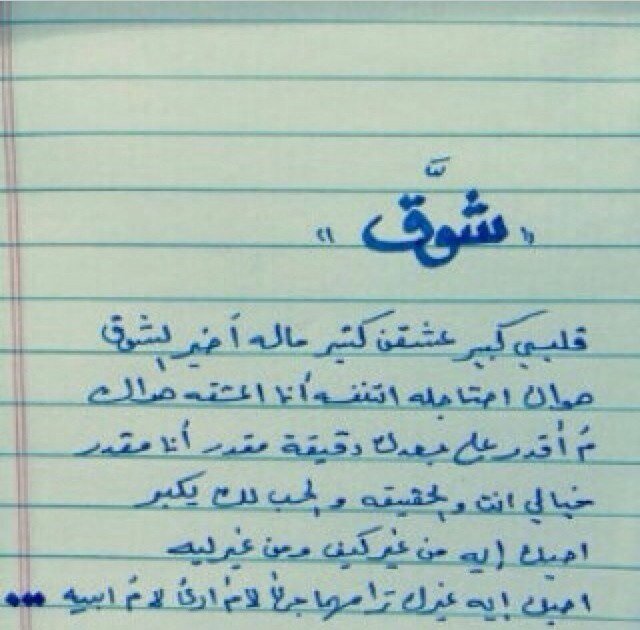 « شوَّق »
قلبي كبير عشقن كتير ماله أخير الشوق
هواك احتاجله اتنفسه أنا اعشقه هواك
مُ أقدر على بعدك دقيقة مقدر أنا مقدر
خيالي انت والحقيقه والحب لك يكبر
احبك إيه من غير كيف ومن غير ليه
احبك إيه غيرك ترا مهما جرا لا مُ ارى لا مُ ابيه ...